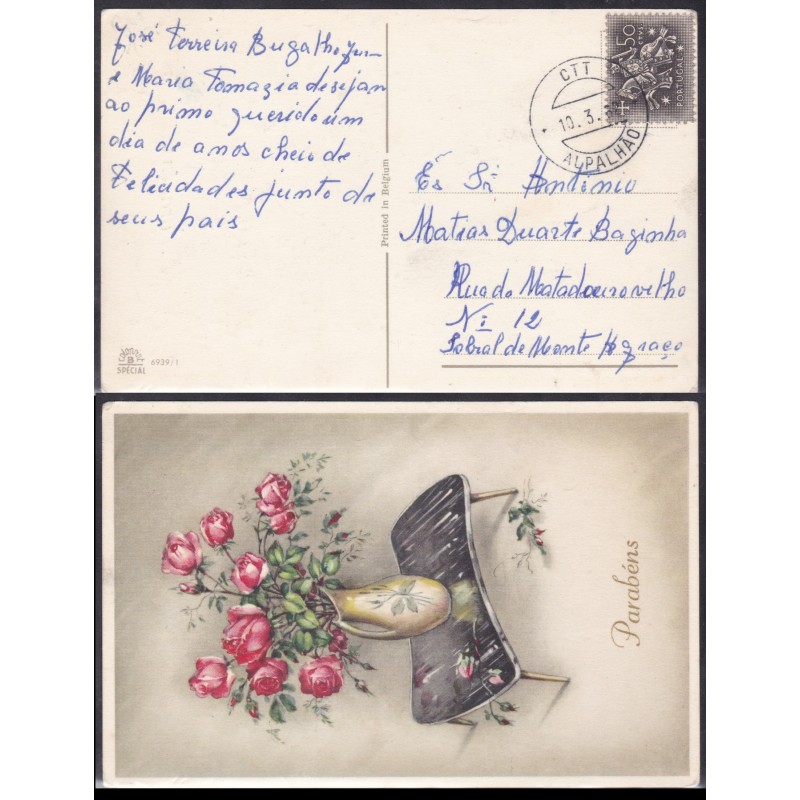 José Ferreira Bugalho Jun-
e Maria Tomazia desejam
ao primo querido um
dia de anos cheio de
Felicidades junto de
seus pais
SPÉCIAL
6939/1
Printed in Belgium
CTT
10.3.
ALPALHÃO
50
CTVS
PORTUGAL
Sr António
Matias Duarte Bazinha
Rua do Matadouro velho
Nº 12
Sobral de Monte Agraço
Parabéns